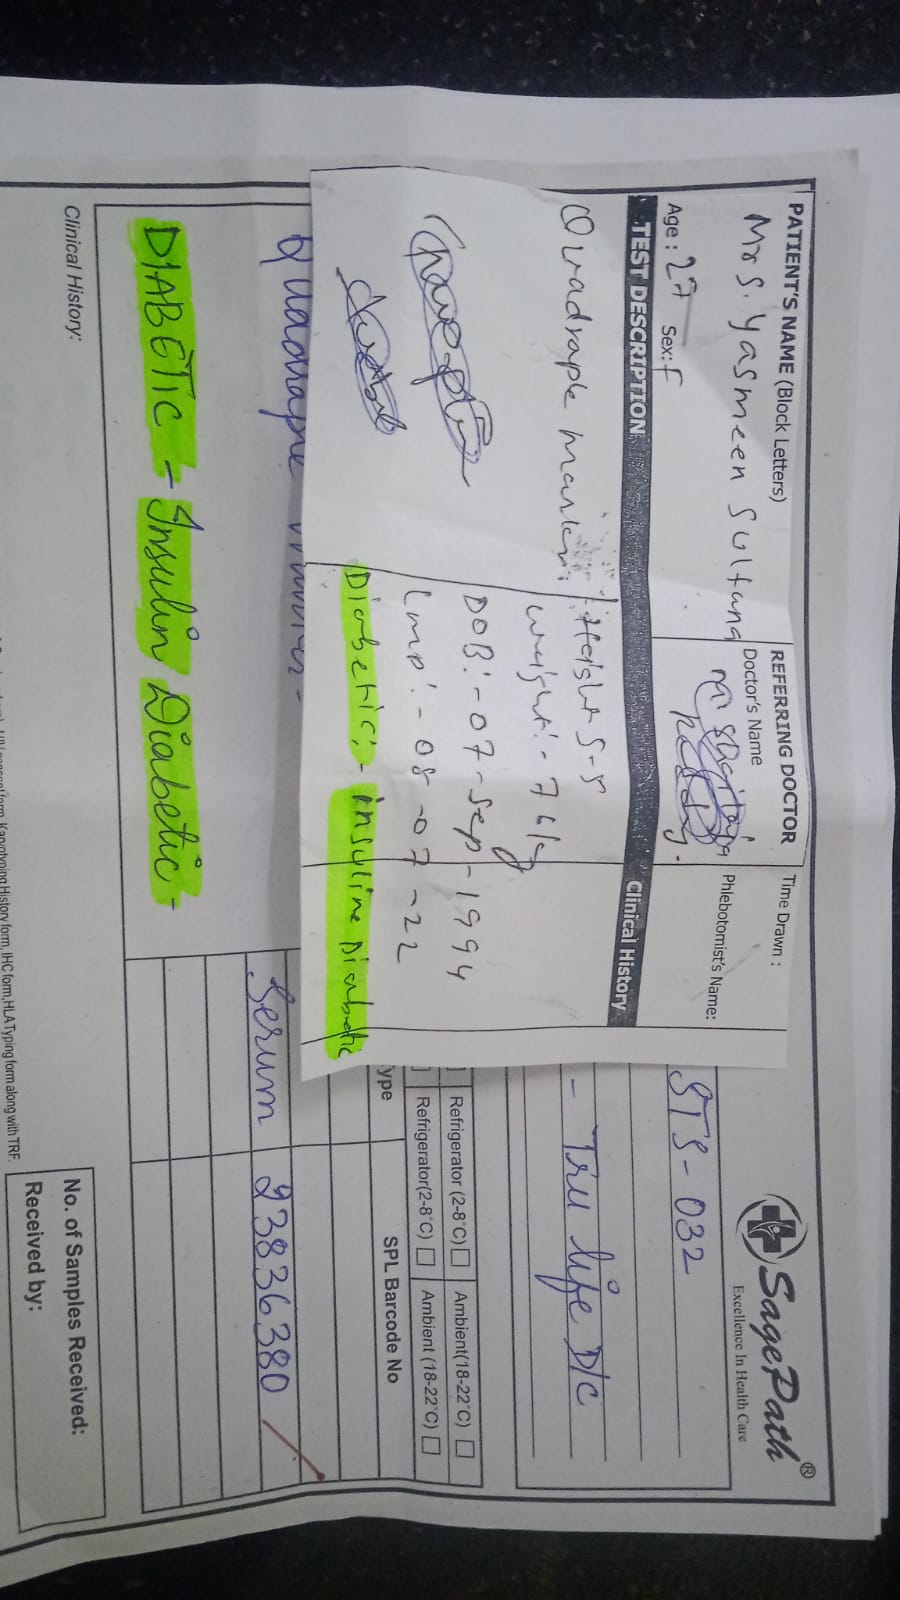 PATIENT'S NAME (Block Letters)
Mrs. Yasmeen Sultana
REFERRING DOCTOR
Doctor's Name
Time Drawn :
Phlebotomist's Name:
Age : 27 Sex: F
TEST DESCRIPTION
Clinical History
Quadraple marker
Height 5-5
weight:-76kg
DOB:-07-Sep-1994
Lmp:-08-07-22
Diabetic:- insuline Diabetic
SagePath®
Excellence In Health Care
STS-032
- Tru life D/c
Refrigerator (2-8°C) Ambient(18-22°C)
Refrigerator(2-8°C) Ambient (18-22°C)
ype
SPL Barcode No
Quadraple
Serum 23836380
DIABETIC - Insulin Diabetic -
Clinical History:
No. of Samples Received:
Received by:
form, Karyotyping History form, IHC form,HLA Typing form along with TRF.